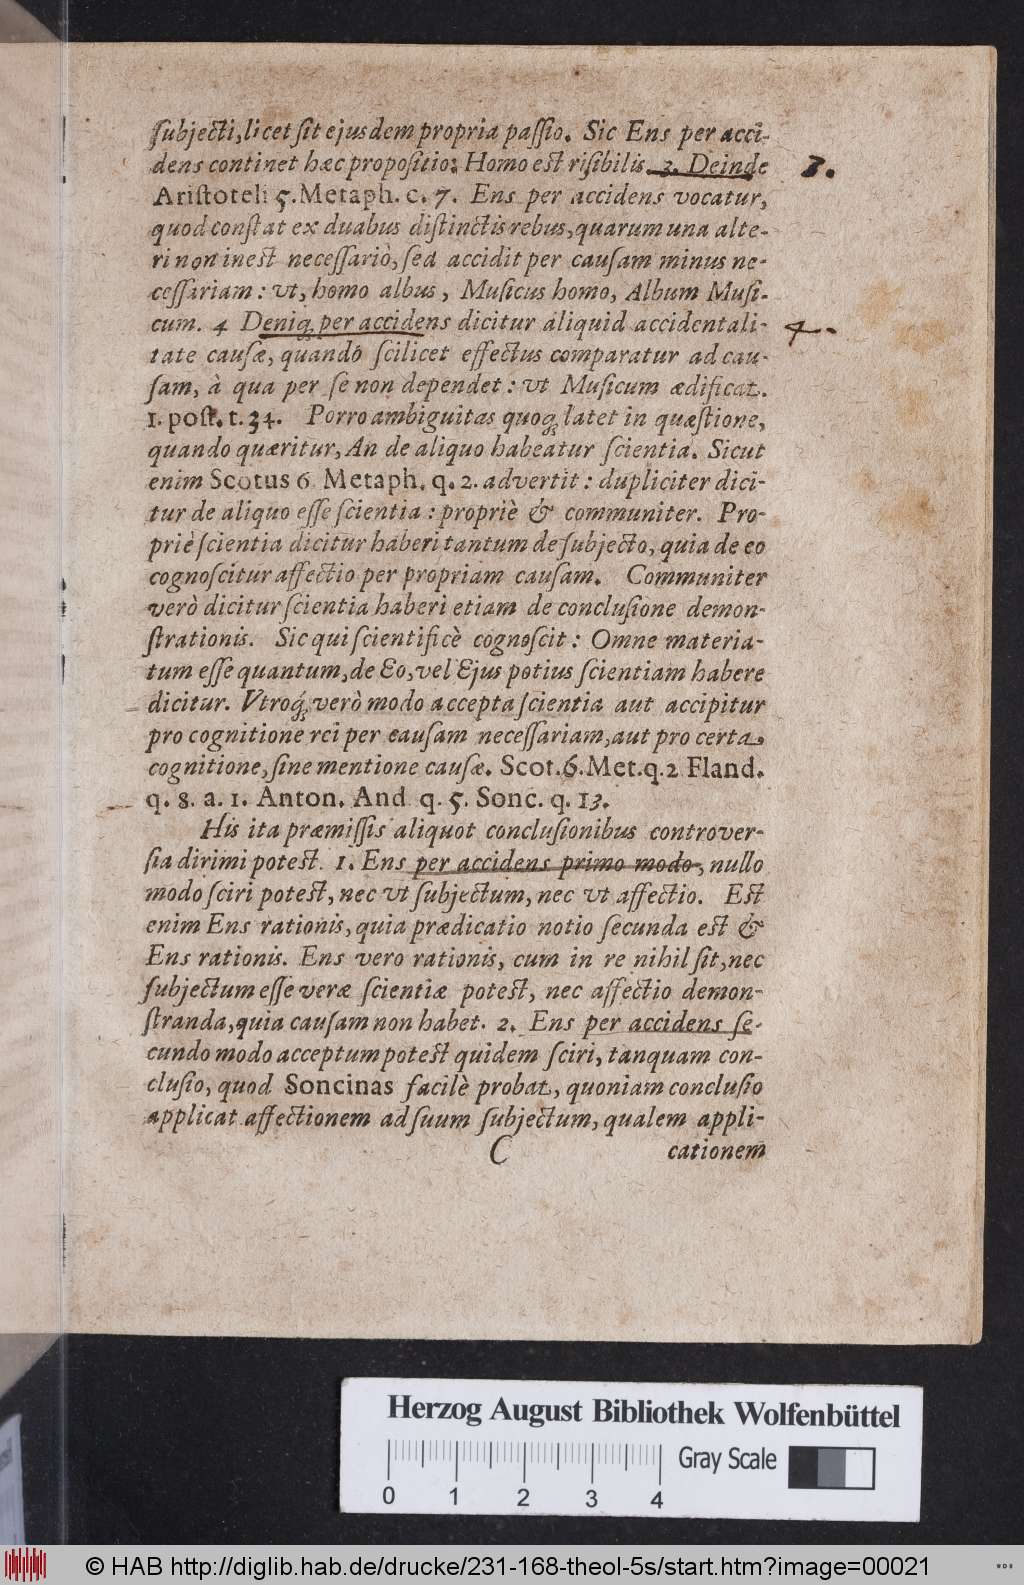 ſubjecti, licet ſit ejusdem propria paſſio. Sic Ens per acci-
dens continet hæc propoſitio: Homo eſt riſibilis. 3. Deinde
3.
Ariſtoteli 5. Metaph. c. 7. Ens per accidens vocatur,
quod conſtat ex duabus diſtinctis rebus, quarum una alte-
ri non ineſt neceſſariò, ſed accidit per cauſam minus ne-
ceſſariam: ut, homo albus, Muſicus homo, Album Muſi-
cum. 4 Deniq; per accidens dicitur aliquid accidentali-
4.
tate cauſæ, quando ſcilicet effectus comparatur ad cau-
ſam, à qua per ſe non dependet: ut Muſicum ædificat.
1. poſt. t. 34. Porro ambiguitas quoq; latet in quæſtione,
quando quæritur, An de aliquo habeatur ſcientia. Sicut
enim Scotus 6 Metaph. q. 2. advertit: dupliciter dici-
tur de aliquo eſſe ſcientia: propriè & communiter. Pro-
priè ſcientia dicitur haberi tantum de ſubjecto, quia de eo
cognoſcitur affectio per propriam cauſam. Communiter
verò dicitur ſcientia haberi etiam de concluſione demon-
ſtrationis. Sic qui ſcientificè cognoſcit: Omne materia-
tum eſſe quantum, de Eo, vel Ejus potius ſcientiam habere
dicitur. Vtroq; verò modo accepta ſcientia aut accipitur
pro cognitione rei per cauſam neceſſariam, aut pro certa
cognitione, ſine mentione cauſæ. Scot. 6. Met. q. 2 Fland.
q. 8. a. 1. Anton. And q. 5. Sonc. q. 13.
His ita præmiſſis aliquot concluſionibus controver-
ſia dirimi poteſt. 1. Ens per accidens primo modo, nullo
modo ſciri poteſt, nec ut ſubjectum, nec ut affectio. Eſt
enim Ens rationis, quia prædicatio notio ſecunda eſt &
Ens rationis. Ens vero rationis, cum in re nihil ſit, nec
ſubjectum eſſe veræ ſcientiæ poteſt, nec affectio demon-
ſtranda, quia cauſam non habet. 2. Ens per accidens ſe-
cundo modo acceptum poteſt quidem ſciri, tanquam con-
cluſio, quod Soncinas facilè probat, quoniam concluſio
applicat affectionem ad ſuum ſubjectum, qualem appli-
C cationem
Herzog August Bibliothek Wolfenbüttel
Gray Scale
0 1 2 3 4
© HAB http://diglib.hab.de/drucke/231-168-theol-5s/start.htm?image=00021